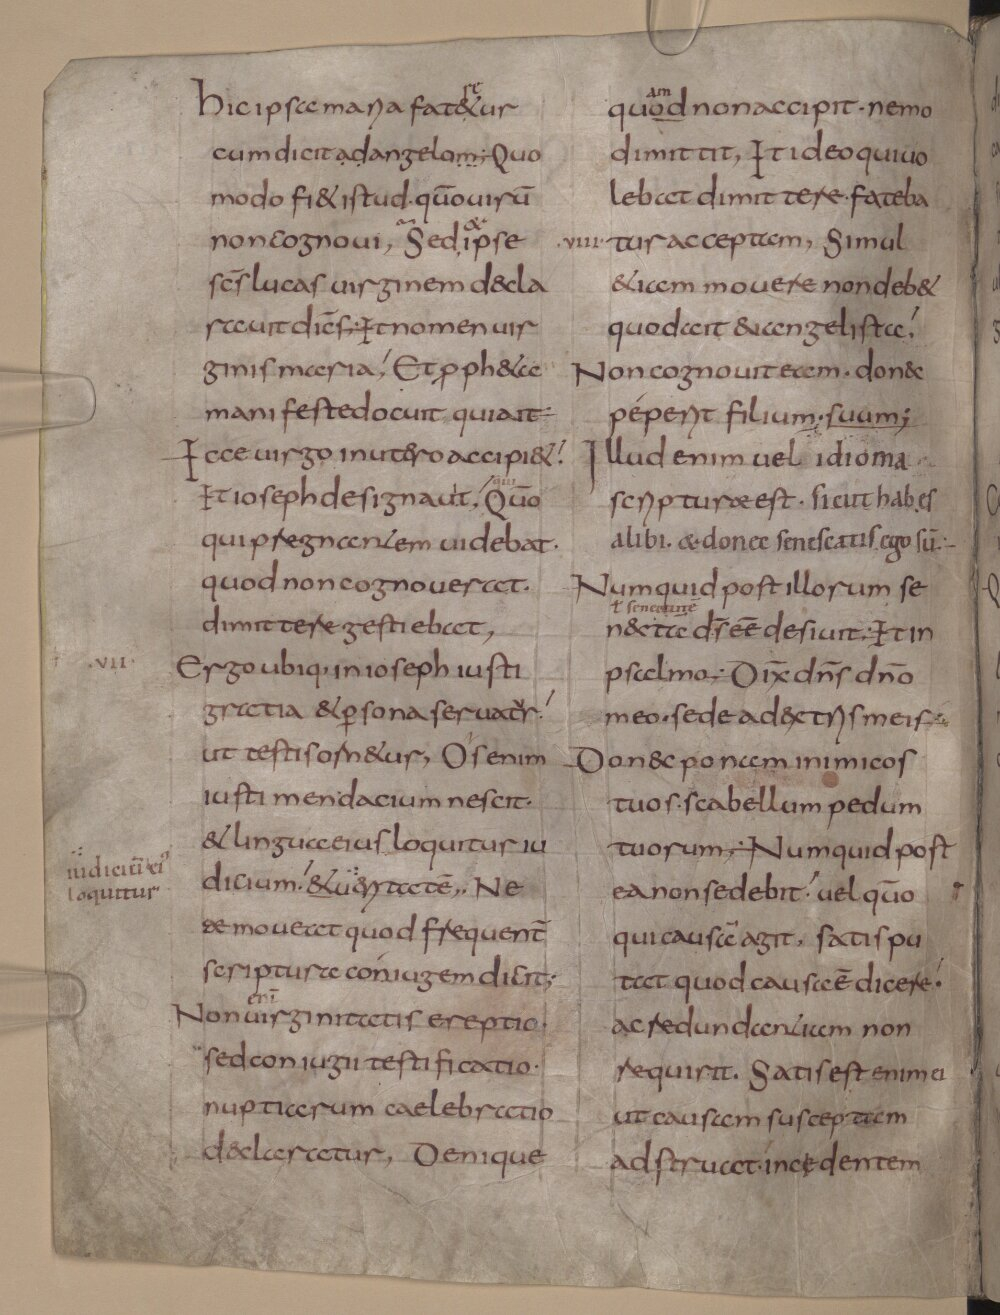 hic ipsa maria fat&ur
se
cum dicit ad angelom; Quo
modo fi& istud· quō uirū
non cognoui, Sed ipse
scs̄ lucas uirginem decla
rauit diēs; Et nomen uir
ginis maria! Et proph&ae
manifeste docuit quia ait;
Ecce uirgo in utero accipi&!
Et ioseph designauit, Quō
qui pregnantem uidebat·
quod non cognouerat·
dimittere gestiebat,
·VII· Ergo ubiq· in ioseph iusti
gratia & persona seruatur!
ut testis orn&ur, Os enim
iusti mendacium nescit·
& lingua eius loquitur iu
iudiciū ei
loquitur
dicium! & ueritatē,, Ne
te moueret quod frequent̄
scripturae coniugem dicit;
enī
Non uirginitatis ereptio·
sed coniugii testificatio·
nuptiarum caelebratio
declaratur, Denique
am
quod non accipit· nemo
dimittit, Et ideo qui uo
lebat dimittere· fateba
·VIII· tur acceptam, Simul
&iam mouere non deb&
quod ait euangelista!
Non cognouit eam· donec
peperit filium· suum;
Illud enim uel idioma
scripturae est· sicut habes
alibi· & donec senescatis ego sū·
Numquid post illorum se
t̄ senectutē
necta ds̄ eē desiuit; Et in
psalmo; Dix̄ dns̄ dnō
meo· sede ad dextris meis
Donec ponam inimicos
tuos· scabellum pedum
tuorum; Numquid post
ea non sedebit! uel quō
qui causā agit, satis pu
tat quod causae ē dicere!
ac redundantiam non
requirit. Satis est enim ei
ut causam susceptam
adstruat· incedentem